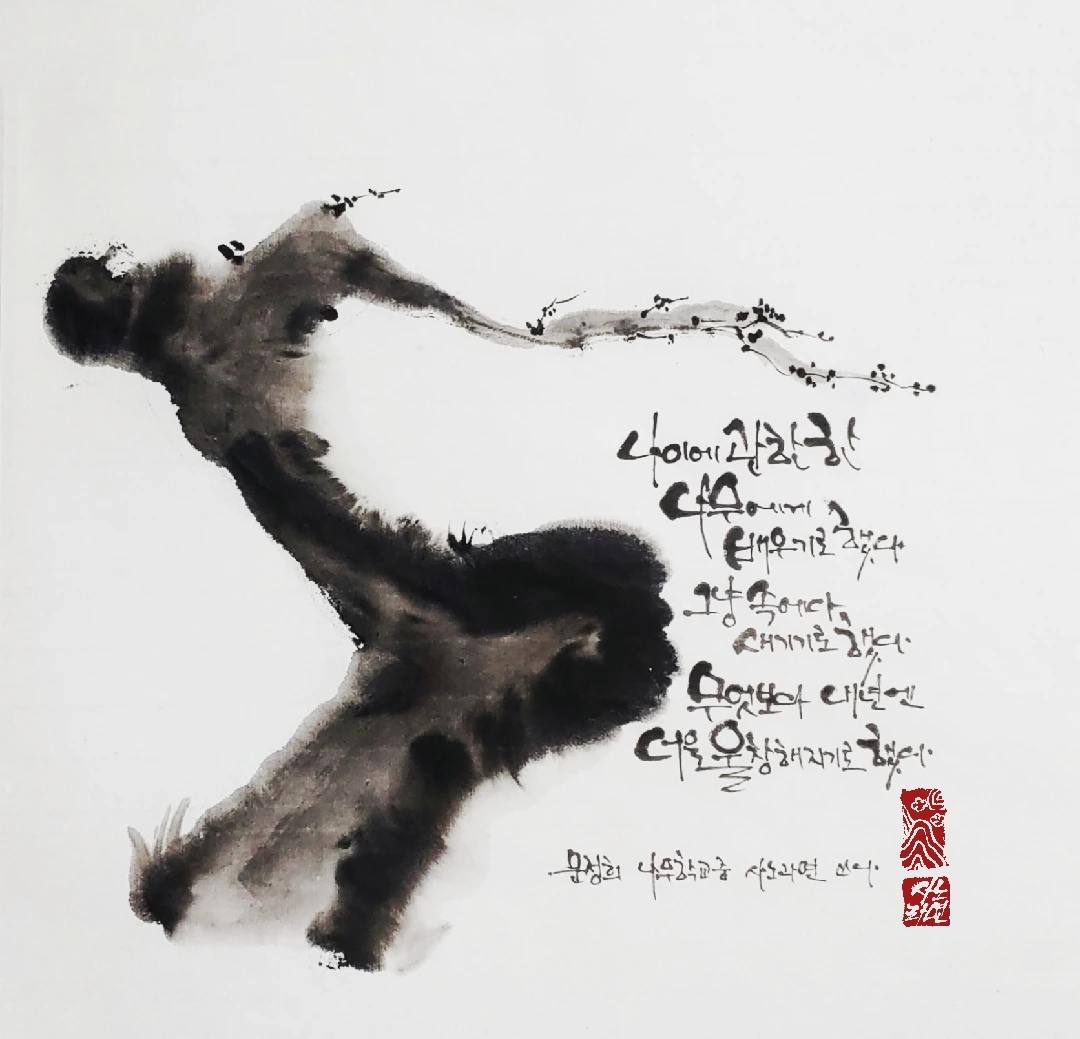 나이에 관한 한
나무에게
배우기로 했다
그냥 속에다
새기기로 했다
무엇보다 내년엔
더욱 울창해지기로 했다.
문정희 나무학교중 사노라면 쓰다.